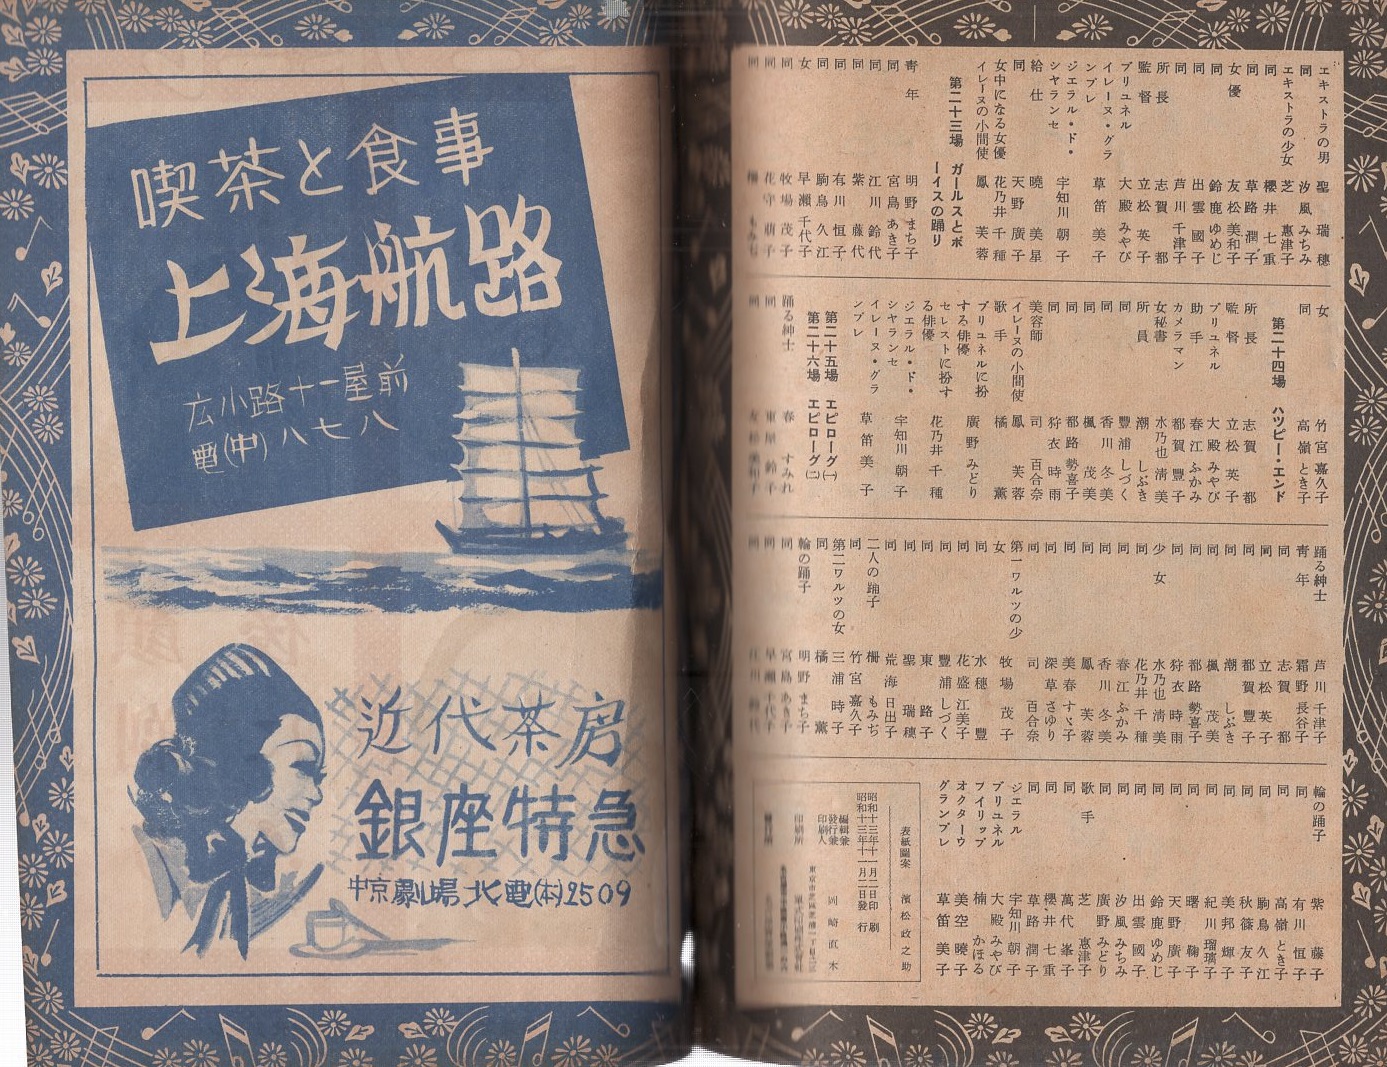 エキストラの男　聖　瑞穗
同　汐風みちみ
エキストラの少女　芝　惠津子
同　櫻井七重
同　草路潤子
女優　友松美和子
同　鈴鹿ゆめじ
同　出雲國子
同　芦川千津子
所長　志賀　都
監督　立松英子
ブリュネル　大殿みやび
イレーヌ・グランプレ　草笛美子
ジエラル・ド・シヤランセ　宇知川朝子
給仕　曉　美星
同　天野廣子
女中になる女優　花乃井千種
イレーヌの小間使　鳳　芙蓉
第二十三場　ガールスとボーイスの踊り
靑年　明野まち子
同　宮島あき子
同　江川鈴代
同　紫　藤代
同　有川恒子
同　駒鳥久江
女　早瀬千代子
同　牧場茂子
同　花守萠子
女　竹宮嘉久子
同　高嶺とき子
第二十四場　ハツピー・エンド
所長　志賀　都
監督　立松英子
ブリュネル　大殿みやび
助手　春江ふかみ
カメラマン　都賀豐子
女秘書　水乃也淸美
所員　潮　しぶき
同　豐浦しづく
同　香川冬美
同　楓　茂美
同　都路勢喜子
同　狩衣時雨
美容師　司　百合奈
イレーヌの小間使　鳳　芙蓉
歌手　橘　薫
ブリュネルに扮する俳優　廣野みどり
セレストに扮する俳優　花乃井千種
ジエラル・ド・シヤランセ　宇知川朝子
イレーヌ・グランプレ　草笛美子
第二十五場　エピローグ(一)
第二十六場　エピローグ(二)
踊る紳士　春　すみれ
同　東屋鈴子
同　友松美和子
踊る紳士　芦川千津子
靑年　霜野長谷子
同　志賀　都
同　立松英子
同　都賀豐子
同　潮　しぶき
同　楓　茂美
同　都路勢喜子
同　狩衣時雨
少女　水乃也淸美
同　花乃井千種
同　春江ふかみ
同　香川冬美
同　鳳　芙蓉
同　美春すゞ子
同　深草さゆり
同　司　百合奈
第一ワルツの少女　牧場茂子
同　水穗　豐
同　花盛江美子
同　豐浦しづく
同　東　路子
同　聖　瑞穗
同　荒海日出子
二人の踊子　柵　もみぢ
同　竹宮嘉久子
第二ワルツの女　三浦時子
同　橘　薫
輪の踊子　明野まち子
同　宮島あき子
同　早瀬千代子
同　江川鈴代
輪の踊子　紫　藤子
同　有川恒子
同　高嶺とき子
同　駒鳥久江
同　秋篠友子
同　美邦輝子
同　紀川瑠璃子
同　曙　鞠子
同　天野廣子
同　鈴鹿ゆめじ
同　出雲國子
同　汐風みちみ
同　廣野みどり
歌手　芝　惠津子
同　萬代峯子
同　櫻井七重
同　草路潤子
ジエラル　宇知川朝子
ブリュネル　大殿みやび
フイリップ　楠　かほる
オクターウ　美空曉子
グランプレ　草笛美子
表紙圖案　濱松政之助
昭和十三年十一月二日印刷
昭和十三年十一月二日發行
編輯兼發行兼印刷人　岡崎直木
印刷所
喫茶と食事
上海航路
広小路十一屋前
電(中)八七八
近代茶房
銀座特急
中京劇場北電(本)2509